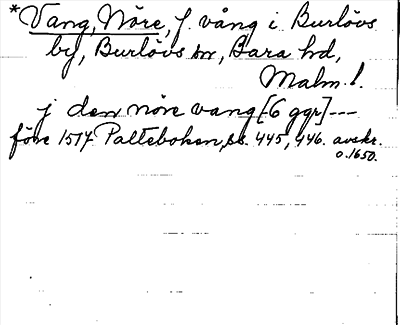 *Vang, Nöre, f. vång i Burlövs
by, Burlövs sn, Bara hd,
Malm. l.
j den nöre vang [6 ggr] ---
före 1517 Palteboken, ss. 445, 446. avskr.
o. 1650.